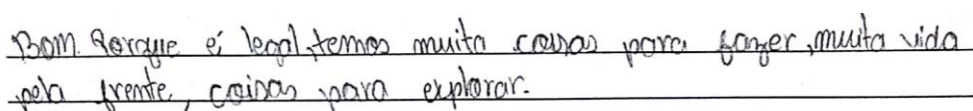 Bom. Porque é legal, temos muita coisas para fazer, muita vida
pela frente, coisas para explorar.